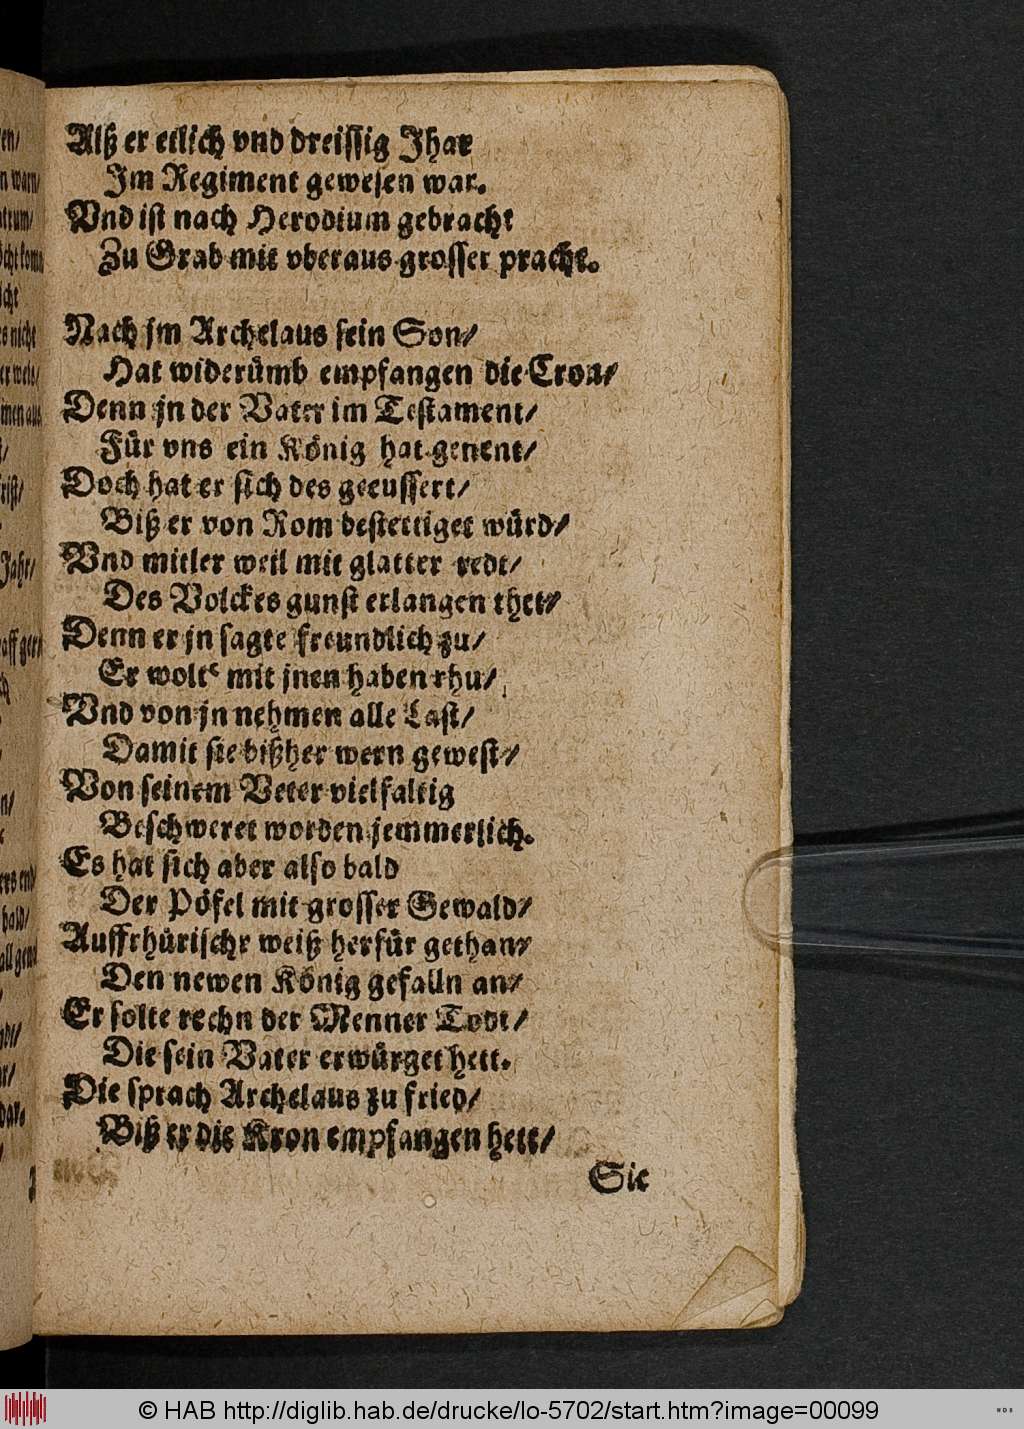 Alß er etlich vnd dreissig Jhar
Im Regiment gewesen war.
Vnd ist nach Herodium gebracht
Zu Grab mit vberaus grosser pracht.
Nach jm Archelaus sein Son/
Hat widerümb empfangen die Cron/
Denn jn der Vater im Testament/
Für vns ein König hat genent/
Doch hat er sich des geeussert/
Biß er von Rom bestettiget würd/
Vnd mitler weil mit glatter redt/
Des Volckes gunst erlangen thet/
Denn er jn sagte freundlich zu/
Er wolt mit jnen haben rhu/
Vnd von jn nehmen alle Last/
Damit sie bißher wern gewest/
Von seinem Veter vielfaltig
Beschweret worden jemmerlich.
Es hat sich aber also bald
Der Pöfel mit grosser Gewald/
Auffrhürischr weiß herfür gethan/
Den newen König gefalln an/
Er solte rechn der Menner Todt/
Die sein Vater erwürget hett.
Die sprach Archelaus zu fried/
Biß er die Kron empfangen hett/
Sie
© HAB http://diglib.hab.de/drucke/lo-5702/start.htm?image=00099